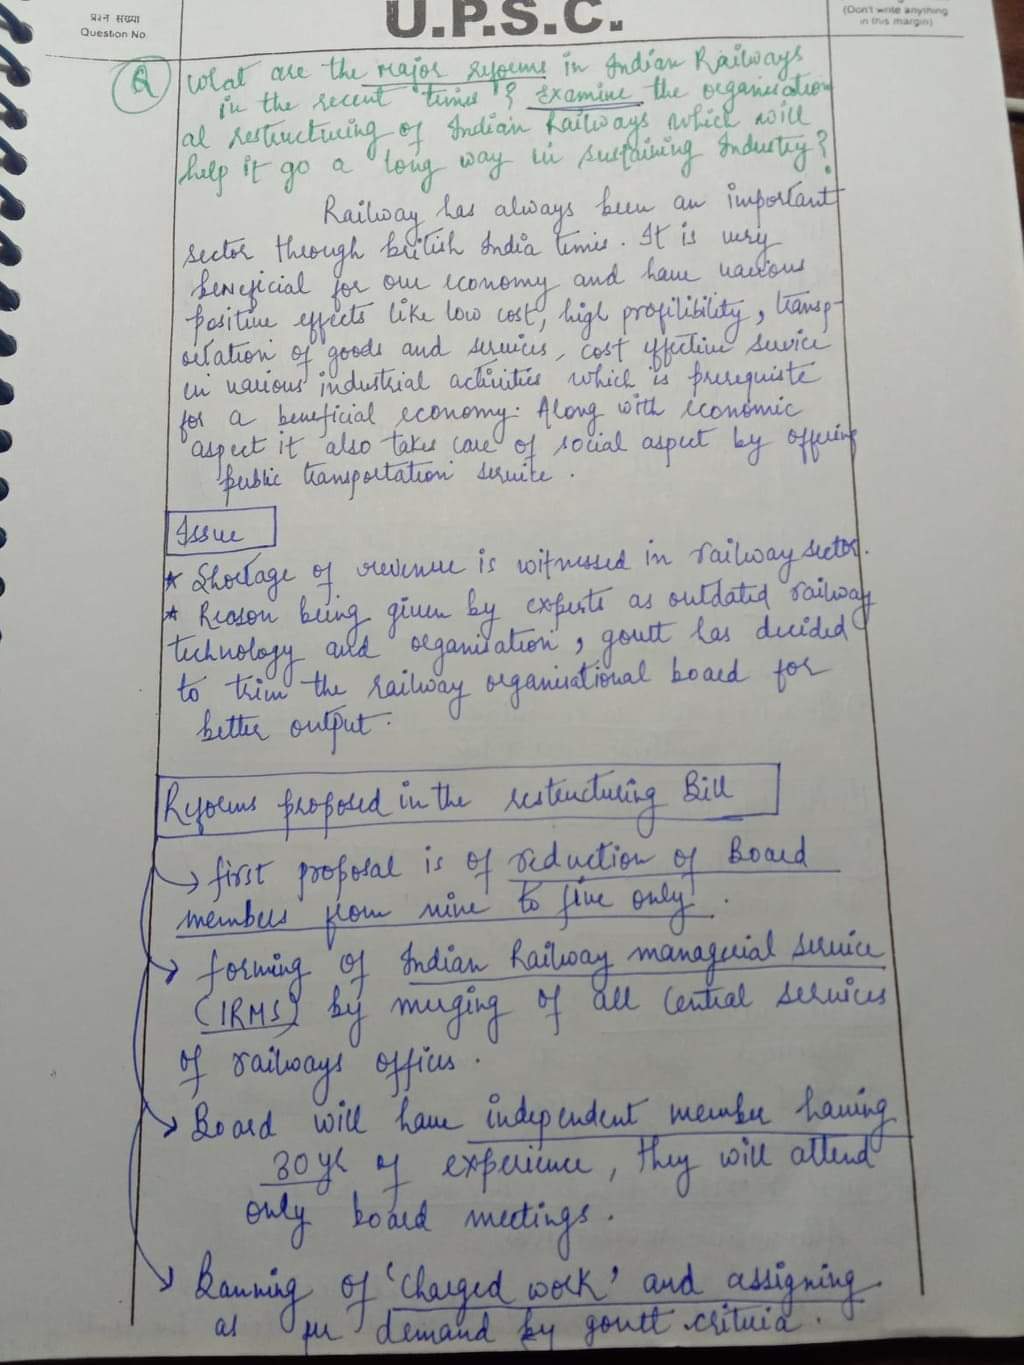 प्रश्न संख्या
Question No.
U.P.S.C.
(Don't write anything
in this margin)
Q What are the major reforms in Indian Railways
in the recent times? Examine the organisation
al restructuring of Indian Railways which will
help it go a long way in sustaining Industry?
Railway has always been an important
sector through british India times. It is very
beneficial for our economy and have various
positive effects like low cost, high profilibility, transp-
ortation of goods and services, cost effective service
in various industrial activities which is prerequiste
for a beneficial economy. Along with economic
aspect it also takes care of social aspect by offering
public transportation service.
Issue
* Shortage of revenue is witnessed in railway sector.
* Reason being given by experts as outdated railway
technology and organisation, goutt has decided
to trim the railway organisational board for
better output.
Reforms proposed in the restructuring Bill
→ first proposal is of reduction of Board
members from nine to five only.
→ forming of Indian Railway managerial service
(IRMS) by merging of all Central services
of railways offices.
→ Board will have independent member having
30 yr of experience, they will attend
only board meetings.
→ Banning of 'Charged work' and assigning
as per demand by goutt criteria.